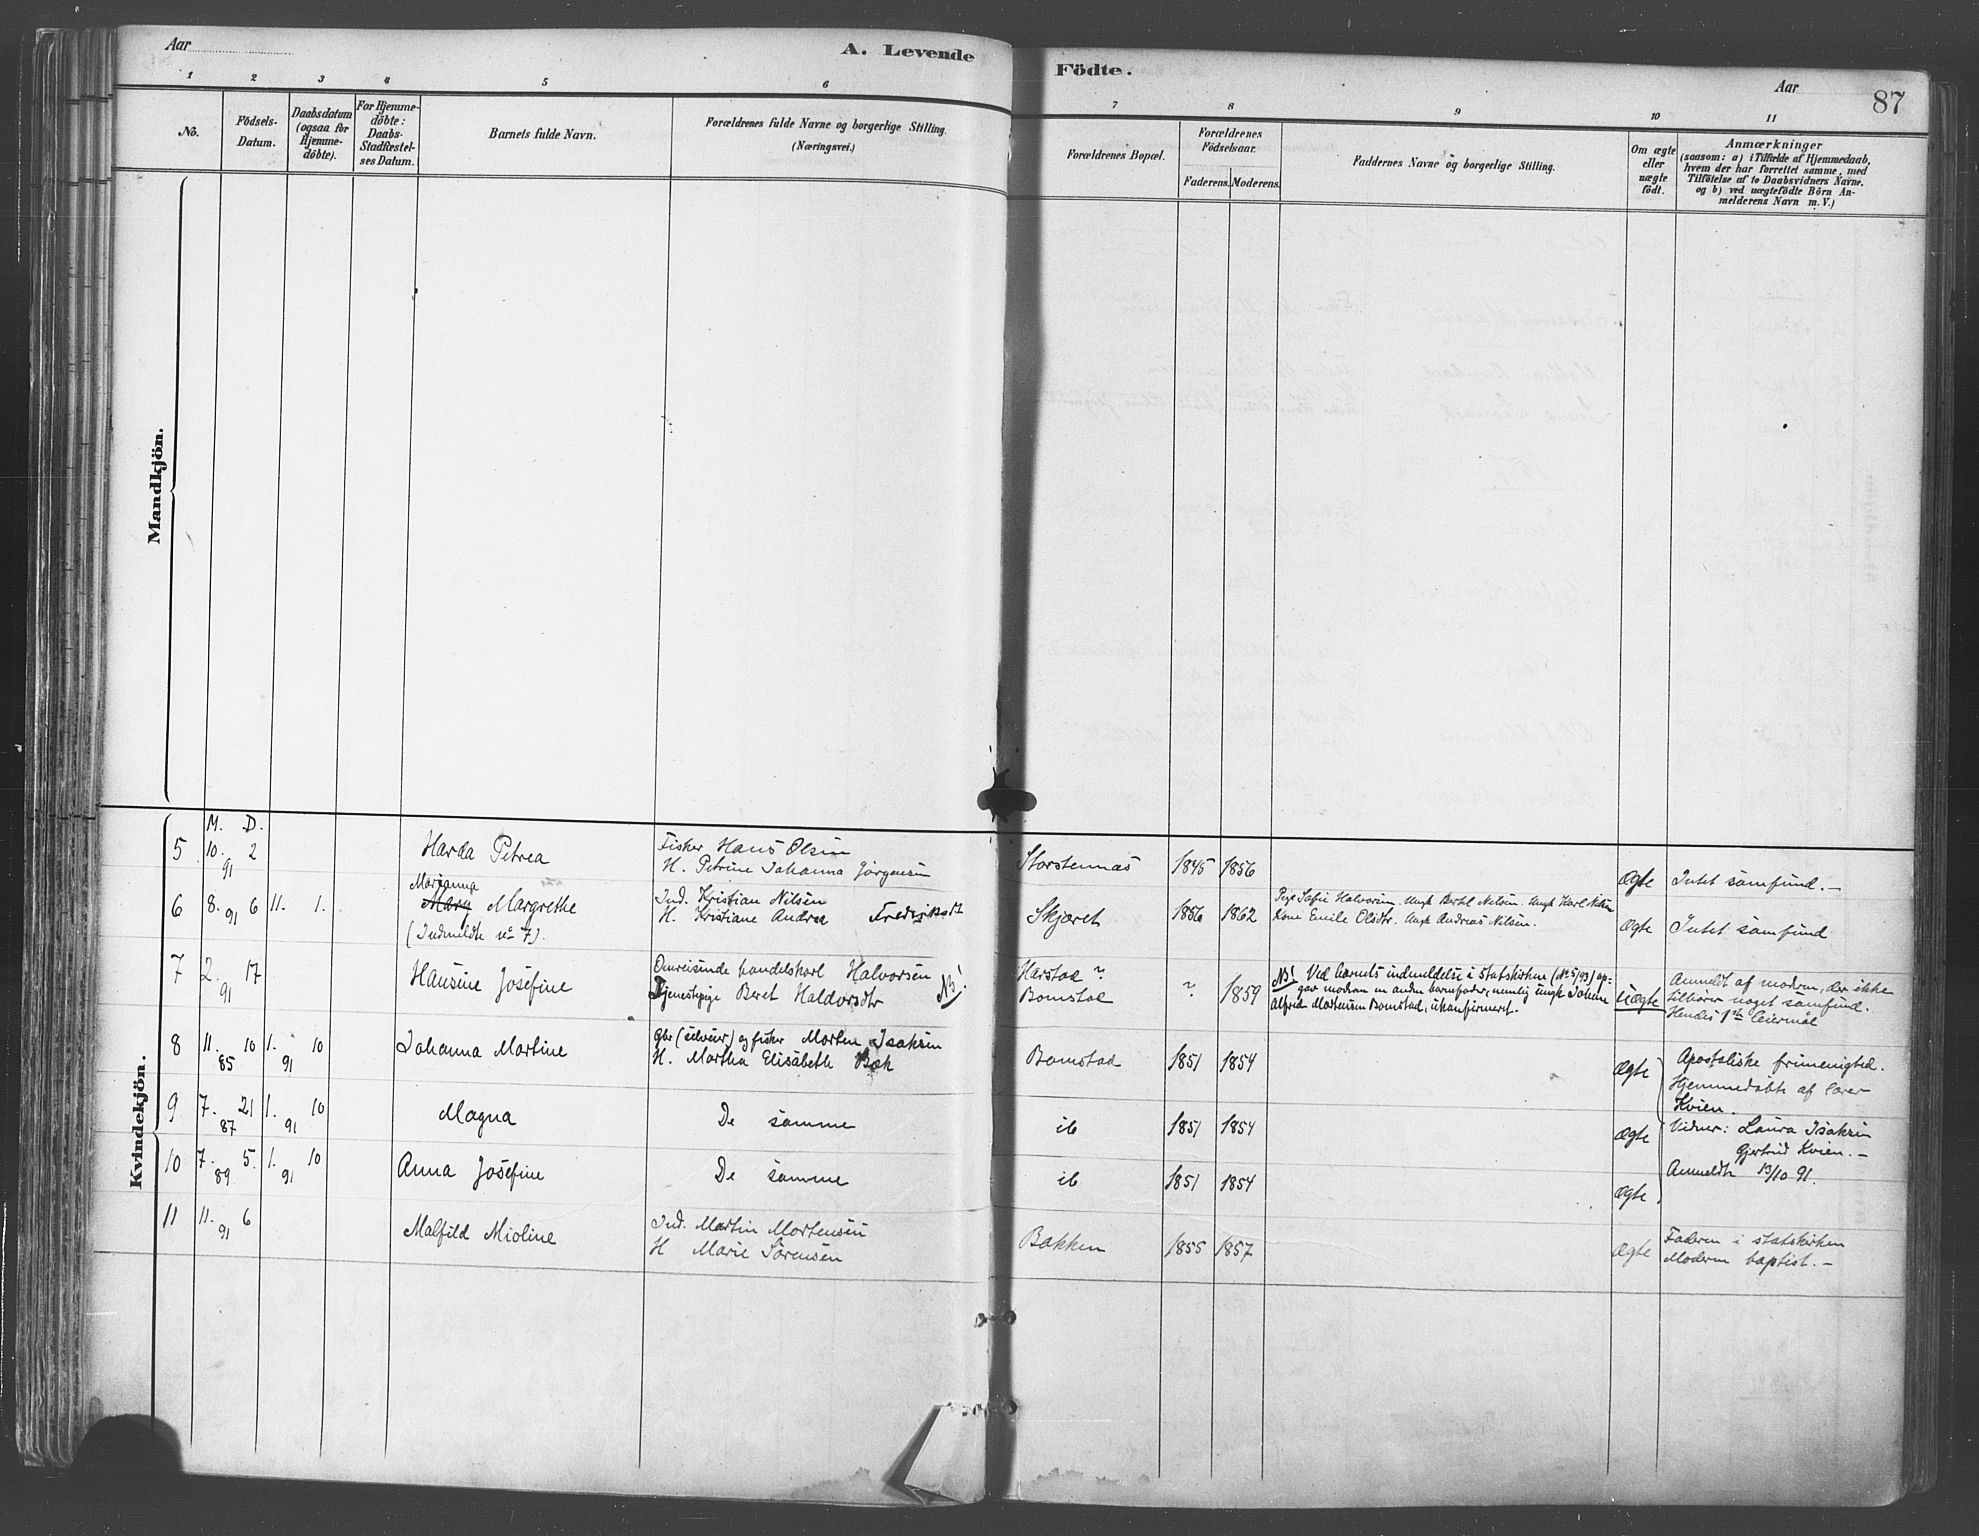 Aar
A. Levende
Födte.
Aar
87
1 2 3 4 5 6 7 8 9 10 11
No.
Födsels-
Datum.
Daabsdatum
(ogsaa for
Hjemme-
döbte).
For Hjemme-
döbte:
Daabs-
Stadfæstel-
ses Datum.
Barnets fulde Navn.
Forældrenes fulde Navne og borgerlige Stilling.
(Næringsvei.)
Forældrenes Bopæl.
Forældrenes
Födselsaar.
Faderens. Moderens.
Faddernes Navne og borgerlige Stilling.
Om ægte
eller
uægte
födt.
Anmærkninger
(saasom: a) i Tilfælde af Hjemmedaab,
hvem der har forrettet samme, med
Tilföielse af to Daabsvidners Navne,
og b) ved uægtefödte Börn An-
melderens Navn m. V.)
Mandkjön.
Kvindekjön.
M. D.
5 10. 2 91
Harda Petrea
Fisker Hans Olsen
H. Petrine Johanna Jørgensen
Storstennæs 1845 1856
Ægte
Intet samfund. —
6 8. 6 91 11. 1.
Marianna
Mary Margrethe
(Indmeldte no 7).
Ind. Kristian Nilsen
H. Kristiane Andrea Frederiksdt
Skjæret 1856 1862
Pige Sofie Halvorsen. Ungk Bertel Nilsen. Ungk Karl Nilsen
Kone Emilie Olsdtr. Ungk Andreas Nilsen.
Ægte
Intet samfund
7 2. 17 91
Hansine Josefine
Omreisende handelskarl Halvorsen
Tjenestepige Beret Haldorsdtr NB!
Harstad ?
Bomstad
? 1859
NB! Ved barnets indmeldelse i statskirken (No 5/93) op-
gav modern en anden barnefader, nemlig ungk Johan
Alfred Mortensen Bomstad, ukonfirmeret.
Uægte
Anmeldt af modern, der ikke
tilhører noget samfund.
Hendes 1ste leiermål
8 11. 10 85 1. 10 91
Johanna Martine
Gbr (selveier) og fisker Morten Isaksen
H. Martha Elisabeth Bæk
Bomstad 1851 1854
Ægte
Apostoliske frimenighed.
Hjemmedøbte af lærer
Kvien.
9 7. 21 87 1. 10 91
Magna
De samme
ib 1851 1854
Ægte
Vidner: Laura Isaksen
Gjertrud Kvien. —
10 7. 5. 89 1. 10 91
Anna Josefine
De samme
ib 1851 1854
Ægte
Anmeldte 13/10 91.
11 11. 6 91
Malfild Mioline
Ind. Martin Mortensen
H Marie Sørensen
Bakken 1855 1857
Ægte
Fadern i statskirken
Modern baptist. —